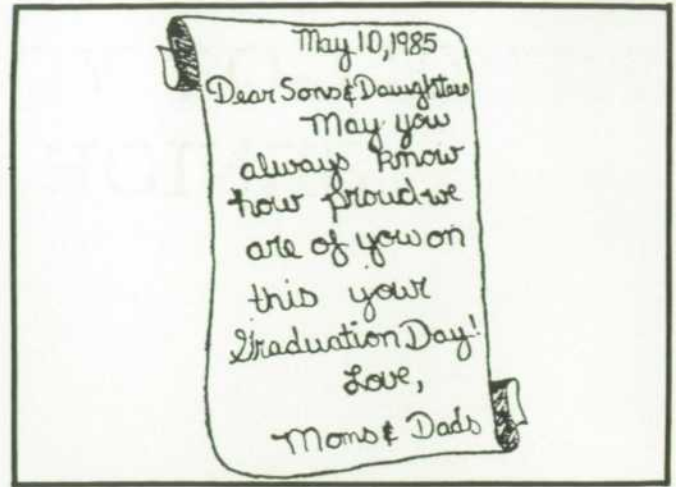 May 10, 1985
Dear Sons & Daughters
May you
always know
how proud we
are of you on
this your
Graduation Day!
Love,
Moms & Dads